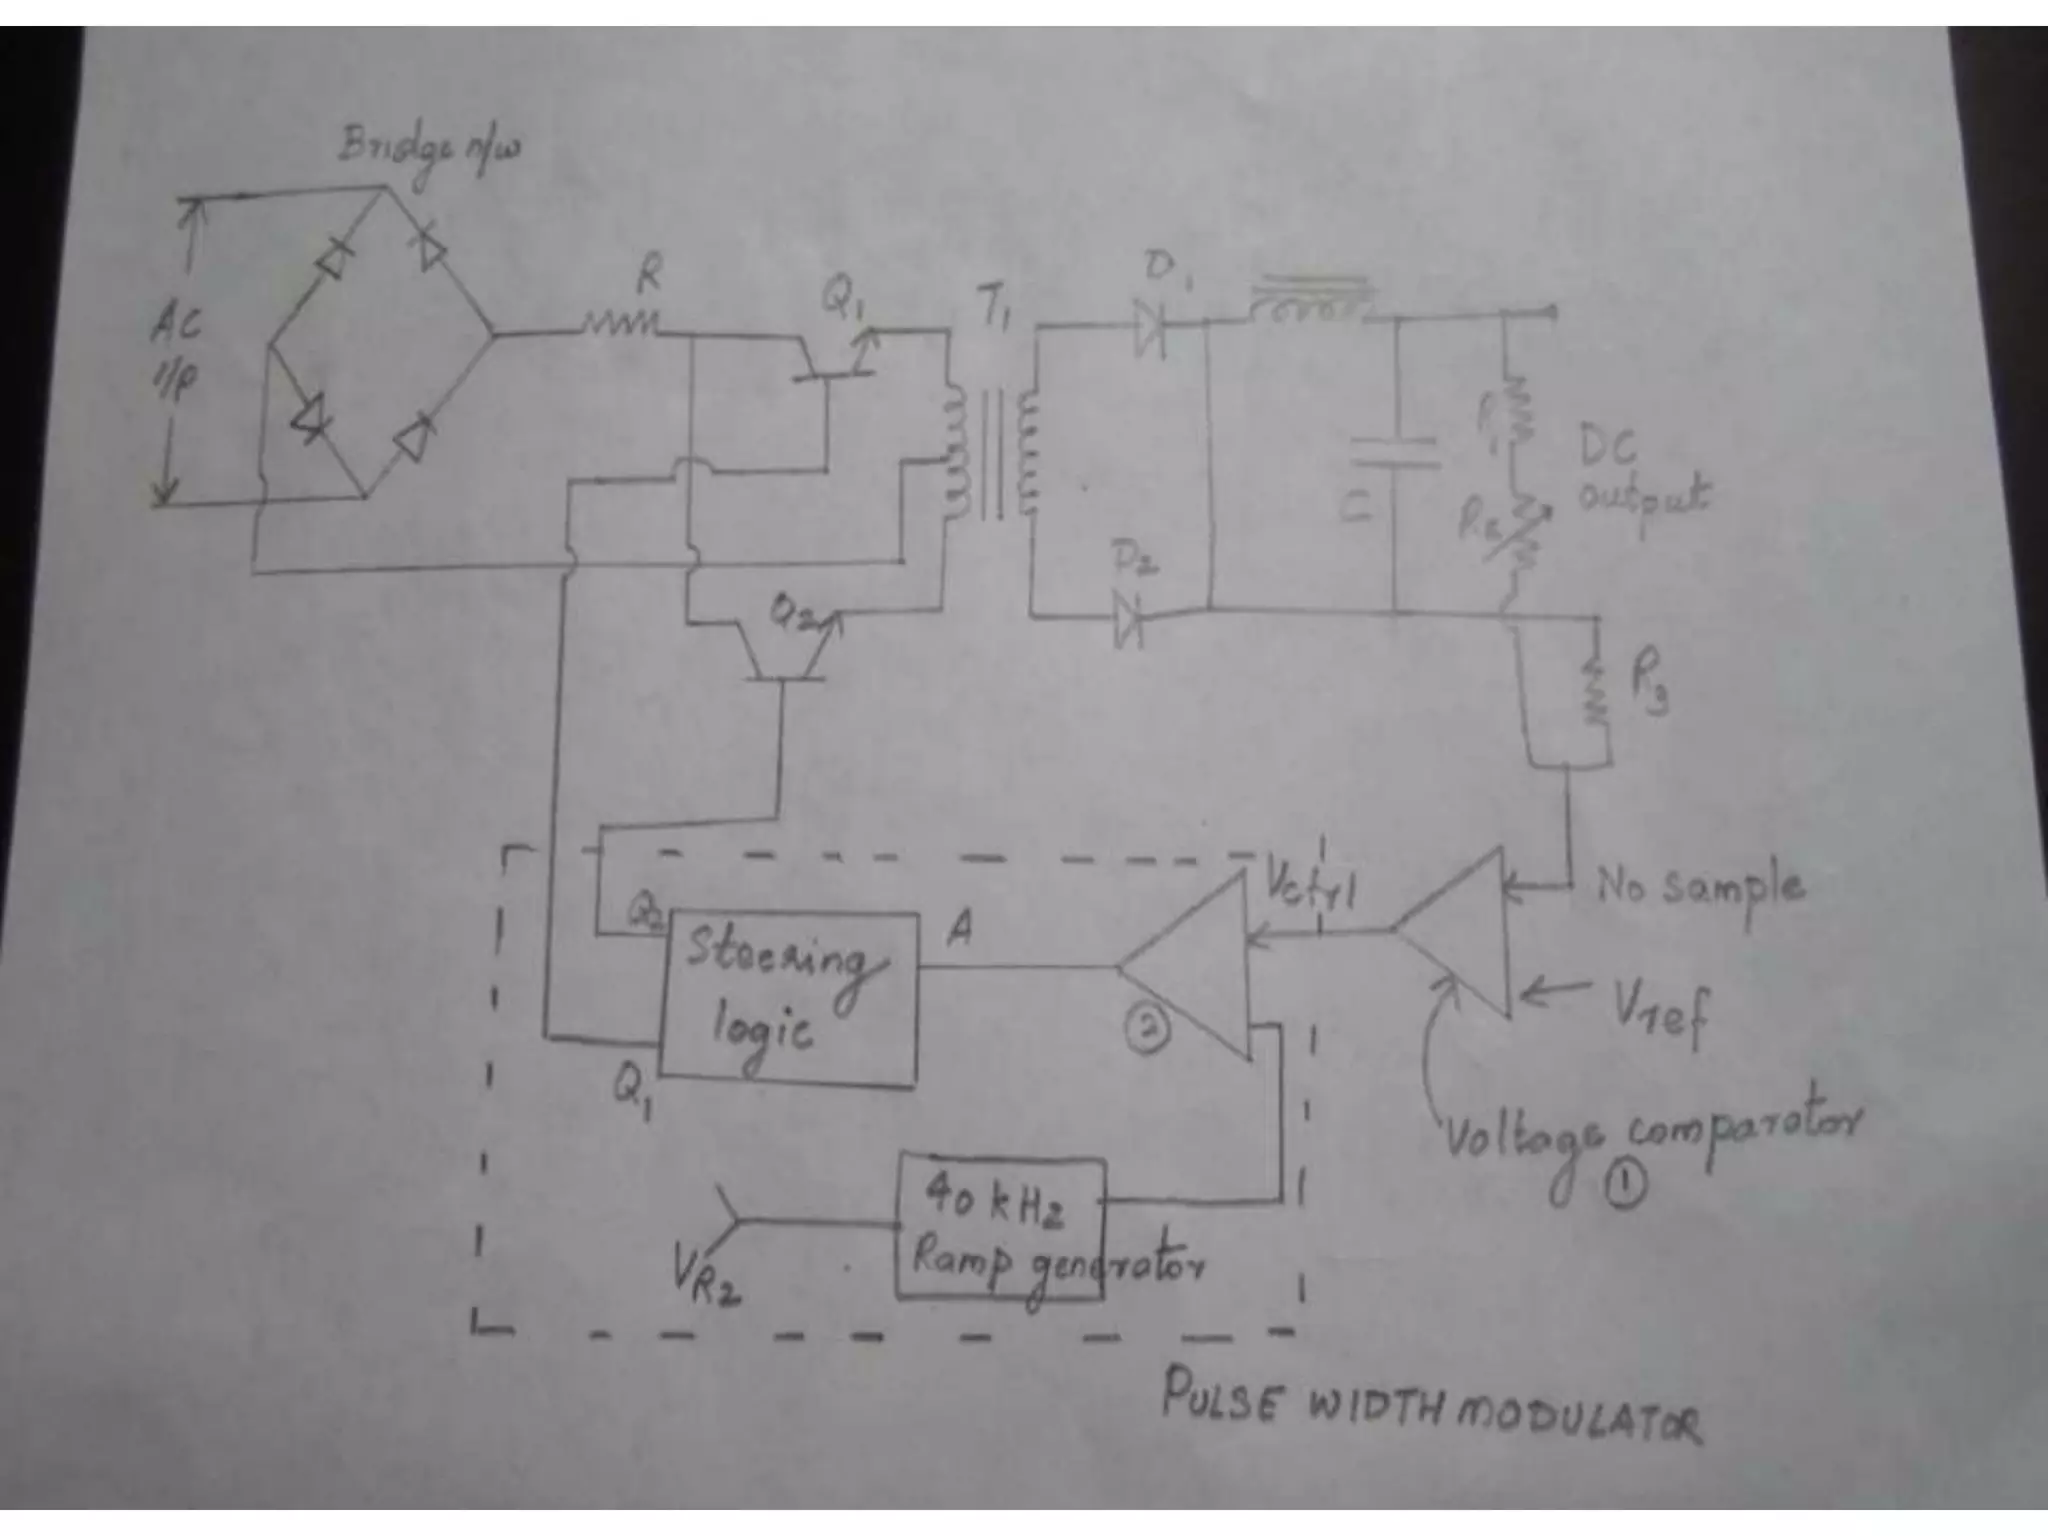 Bridge n/w
AC
i/p
R
Q1
T1
D1
DC
output
C
R2
D2
Q2
R3
Vctrl
No sample
Q2
Steering
logic
A
2
Vref
Q1
Voltage comparator
1
40 kHz
Ramp generator
VR2
PULSE WIDTH MODULATOR